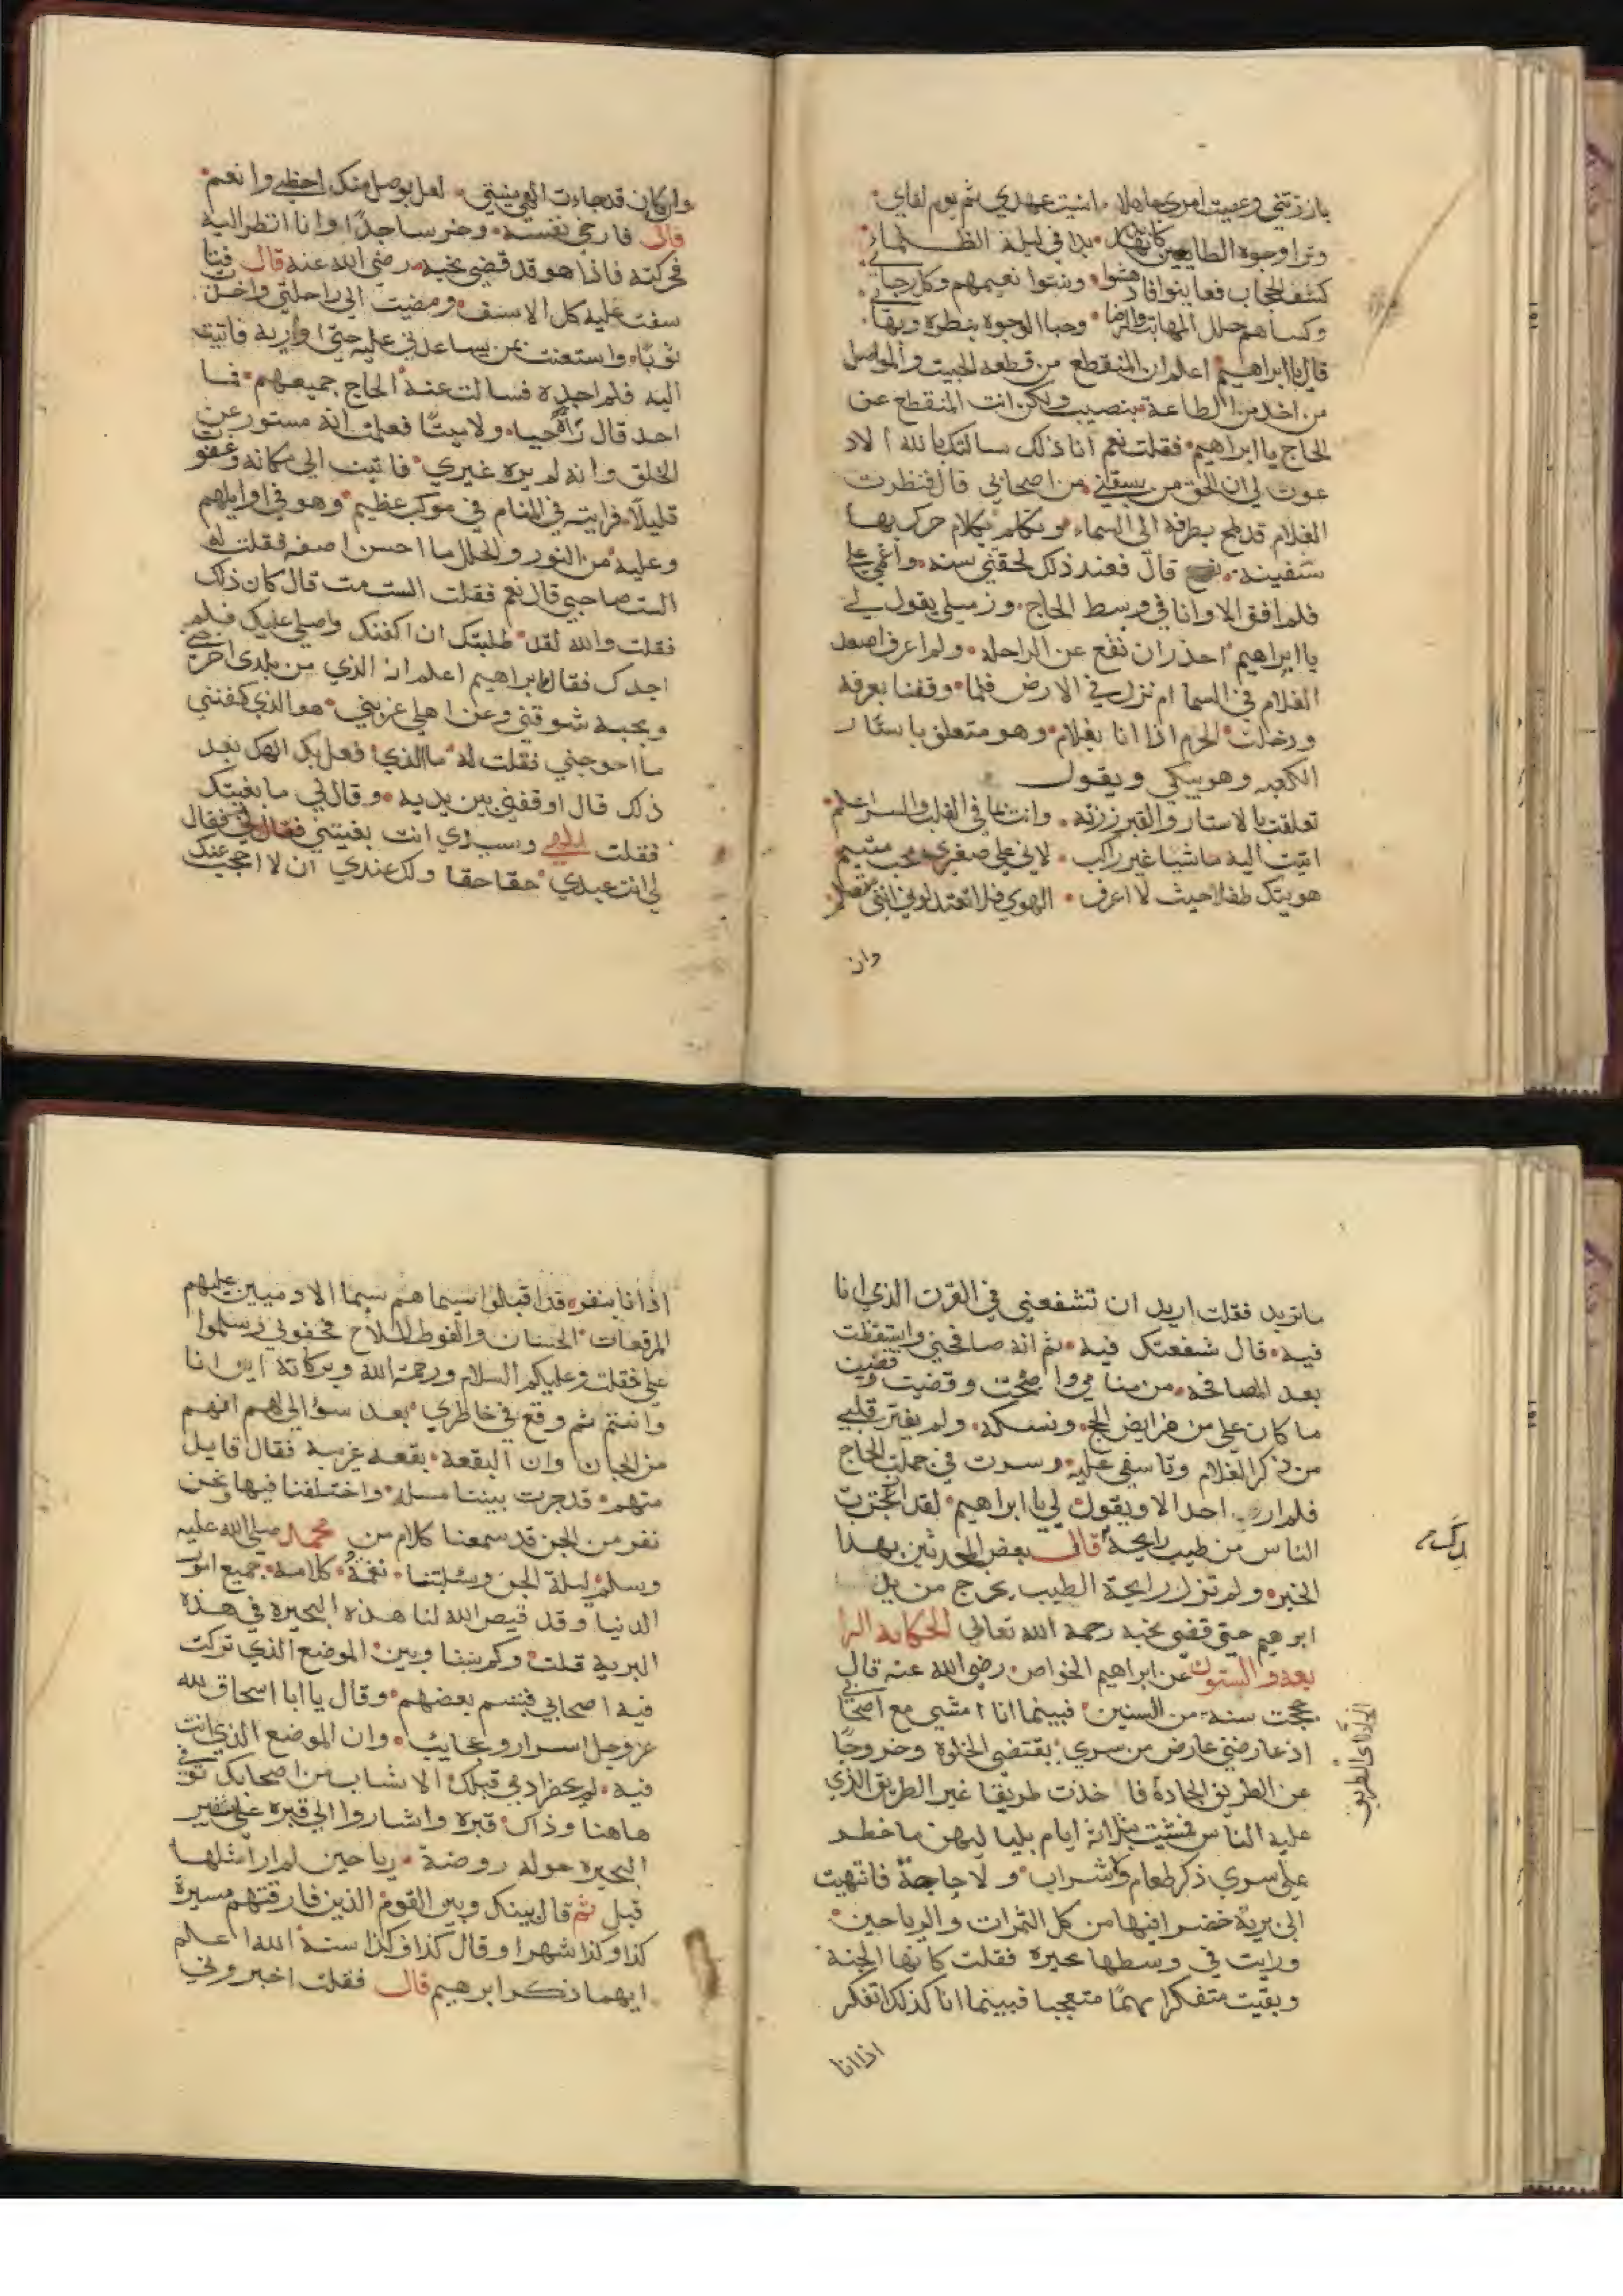 بارزتني وعصيت امري جاهلا • انسيت عهدي ثم يوم لقاي •
وترا وجوه الطايعين كانها • بدا في ليلة الظلماء •
كشف الحجاب فعاينوا فادهشوا • ونسوا نعيمهم وكل رجاء
وكساهم حلل المهابة والرضا • وحبا الوجوه بنظرة وبهاء
قال يا ابراهيم اعلم ان المنقطع من قطعه الحبيب والمواصل
من اخذ من الطاعة بنصيب ولكن انت المنقطع عن
الحاج يا ابراهيم • فقلت نعم انا ذلك سالتك بالله الا د
عوت لي ان الحق من سبقني من اصحابي قال فنظرت
الغلام قد لمح بطرفه الى السماء • وتكلم بكلام حرك بها
شفتيه • قال فعند ذلك لحقتني سنة • واغمي علي
فلم افق الا وانا في وسط الحاج • وزميلي يقول لي
يا ابراهيم احذر ان تقع عن الراحلة • ولم اعرف اصعد
الغلام في السما ام نزل في الارض فلما وقفنا بعرفة
ودخلت الحرم اذا انا بغلام • وهو متعلق باستار
الكعبة وهو يبكي ويقول
تعلقت بالاستار والقبر زرته • وانت بما في القلب والسر اعلم •
اتيت اليه ماشيا غير راكب • لاني على صغري محب متيم
هويتك طفلا حيث لا اعرف • الهوي فلا تعتذلوني انني متعلم
وان
وان كان قد جاءت الهي منيتي • لعل بوصل منك احظى وانعم •
قال فارخى نفسه • وخر ساجدا وانا انظر اليه
فحركته فاذا هو قد قضى نحبه رضي الله عنه قال فتا
سفت عليه كل الاسف • ومضيت الي راحلتي واخذت
ثوبا • واستعنت بمن يساعدني عليه حتى اواريه فاتيت
اليه فلم اجده فسالت عنه الحاج جميعهم • فما
احد قال راه حيا • ولا ميتا فعلمت انه مستور عن
الخلق وانه لم يره غيري • فاتيت الي مكانه وغفوت
قليلا • فرايته في المنام في موكب عظيم • وهو في اوايلهم
وعليه من النور والحلل ما احسن اصفه فقلت له
الست صاحبي قال نعم فقلت الست مت قال كان ذلك
فقلت والله لقد طلبتك ان اكفنك واصلي عليك فلم
اجدك فقال يا ابراهيم اعلم ان الذي من بلدي اخرجني
وبحبه شوقني وعن اهلي غربني • هو الذي كفنني
ما احوجني فقلت له ما الذي فعل بك الهك بعد
ذلك قال اوقفني بين يديه • وقال لي ما بغيتك
فقلت الهي وسيدي انت بغيتي فقال لي فقال
لي انت عبدي حقا حقا ولك عندي ان لا احجب عنك
ما تريد فقلت اريد ان تشفعني في القرن الذي انا
فيه • قال شفعتك فيه • ثم انه صافحني واستيقظت
بعد المصافحة • من منامي واصبحت وقضيت
ما كان علي من فرايض الحج • ونسكه • ولم يفتر قلبي
من ذكر الغلام وتاسفي عليه • وسرت في جملة الحاج
فلم ار احدا الا ويقول لي يا ابراهيم • لقد اعجزت
الناس من طيب رايحة قال بعض المحدثين بهذا
الخبر • ولم تزل رايحة الطيب يخرج من يد
ابرهيم حتى قضى نحبه رحمه الله تعالى الحكاية الرا
بعة والستون عن ابراهيم الخواص • رضي الله عنه قال
حججت سنة • من السنين • فبينما انا امشي مع اصحابي
اذ عارضني عارض من سري • يقتضي الخلوة وخروجا
عن الطريق الجادة فاخذت طريقا غير الطريق الذي
عليه الناس فمشيت ثلاثة ايام بلياليهن ما خطر
على سري ذكر طعام ولا شراب • ولا حاجة فانتهيت
الى برية خضرا فيها من كل الثمرات والرياحين •
ورايت في وسطها بحيرة فقلت كانها الجنة •
وبقيت متفكرا مهتما متعجبا فبينما انا كذلك اتفكر
اذا انا
اذا انا بنفر • قد اقبلوا سيماهم سيما الادميين عليهم
المرقعات الحسان والفوط الملاح فحفوني وسلموا
علي فقلت وعليكم السلام ورحمة الله وبركاته اين انا
وانتم ثم وقع في خاطري • بعد سؤالي لهم انهم
من الجان وان البقعة • بقعة غريبة فقال قايل
منهم • قد جرت بيننا مسلة • واختلفنا فيها ونحن
نفر من الجن قد سمعنا كلام من محمد صلى الله عليه
وسلم ليلة الجن وسلبتنا • نغمة • كلامه • جميع امور
الدنيا وقد قيض الله لنا هذه البحيرة في هذه
البرية قلت وكم بيننا وبين الموضع الذي تركت
فيه اصحابي فتبسم بعضهم • وقال يا ابا اسحاق لله
عز وجل اسرار وعجايب • وان الموضع الذي انت
فيه • لم يحضر ادمي قبلك الا شاب من اصحابك توفي
هاهنا وذاك قبره واشاروا الي قبره على شفير
البحيرة حوله روضة • رياحين لم ار مثلها
قبل ثم قال بينك وبين القوم الذين فارقتهم مسيرة
كذا وكذا شهرا وقال كذا وكذا سنة الله اعلم
ايهما ذكر ابرهيم قال فقلت اخبروني